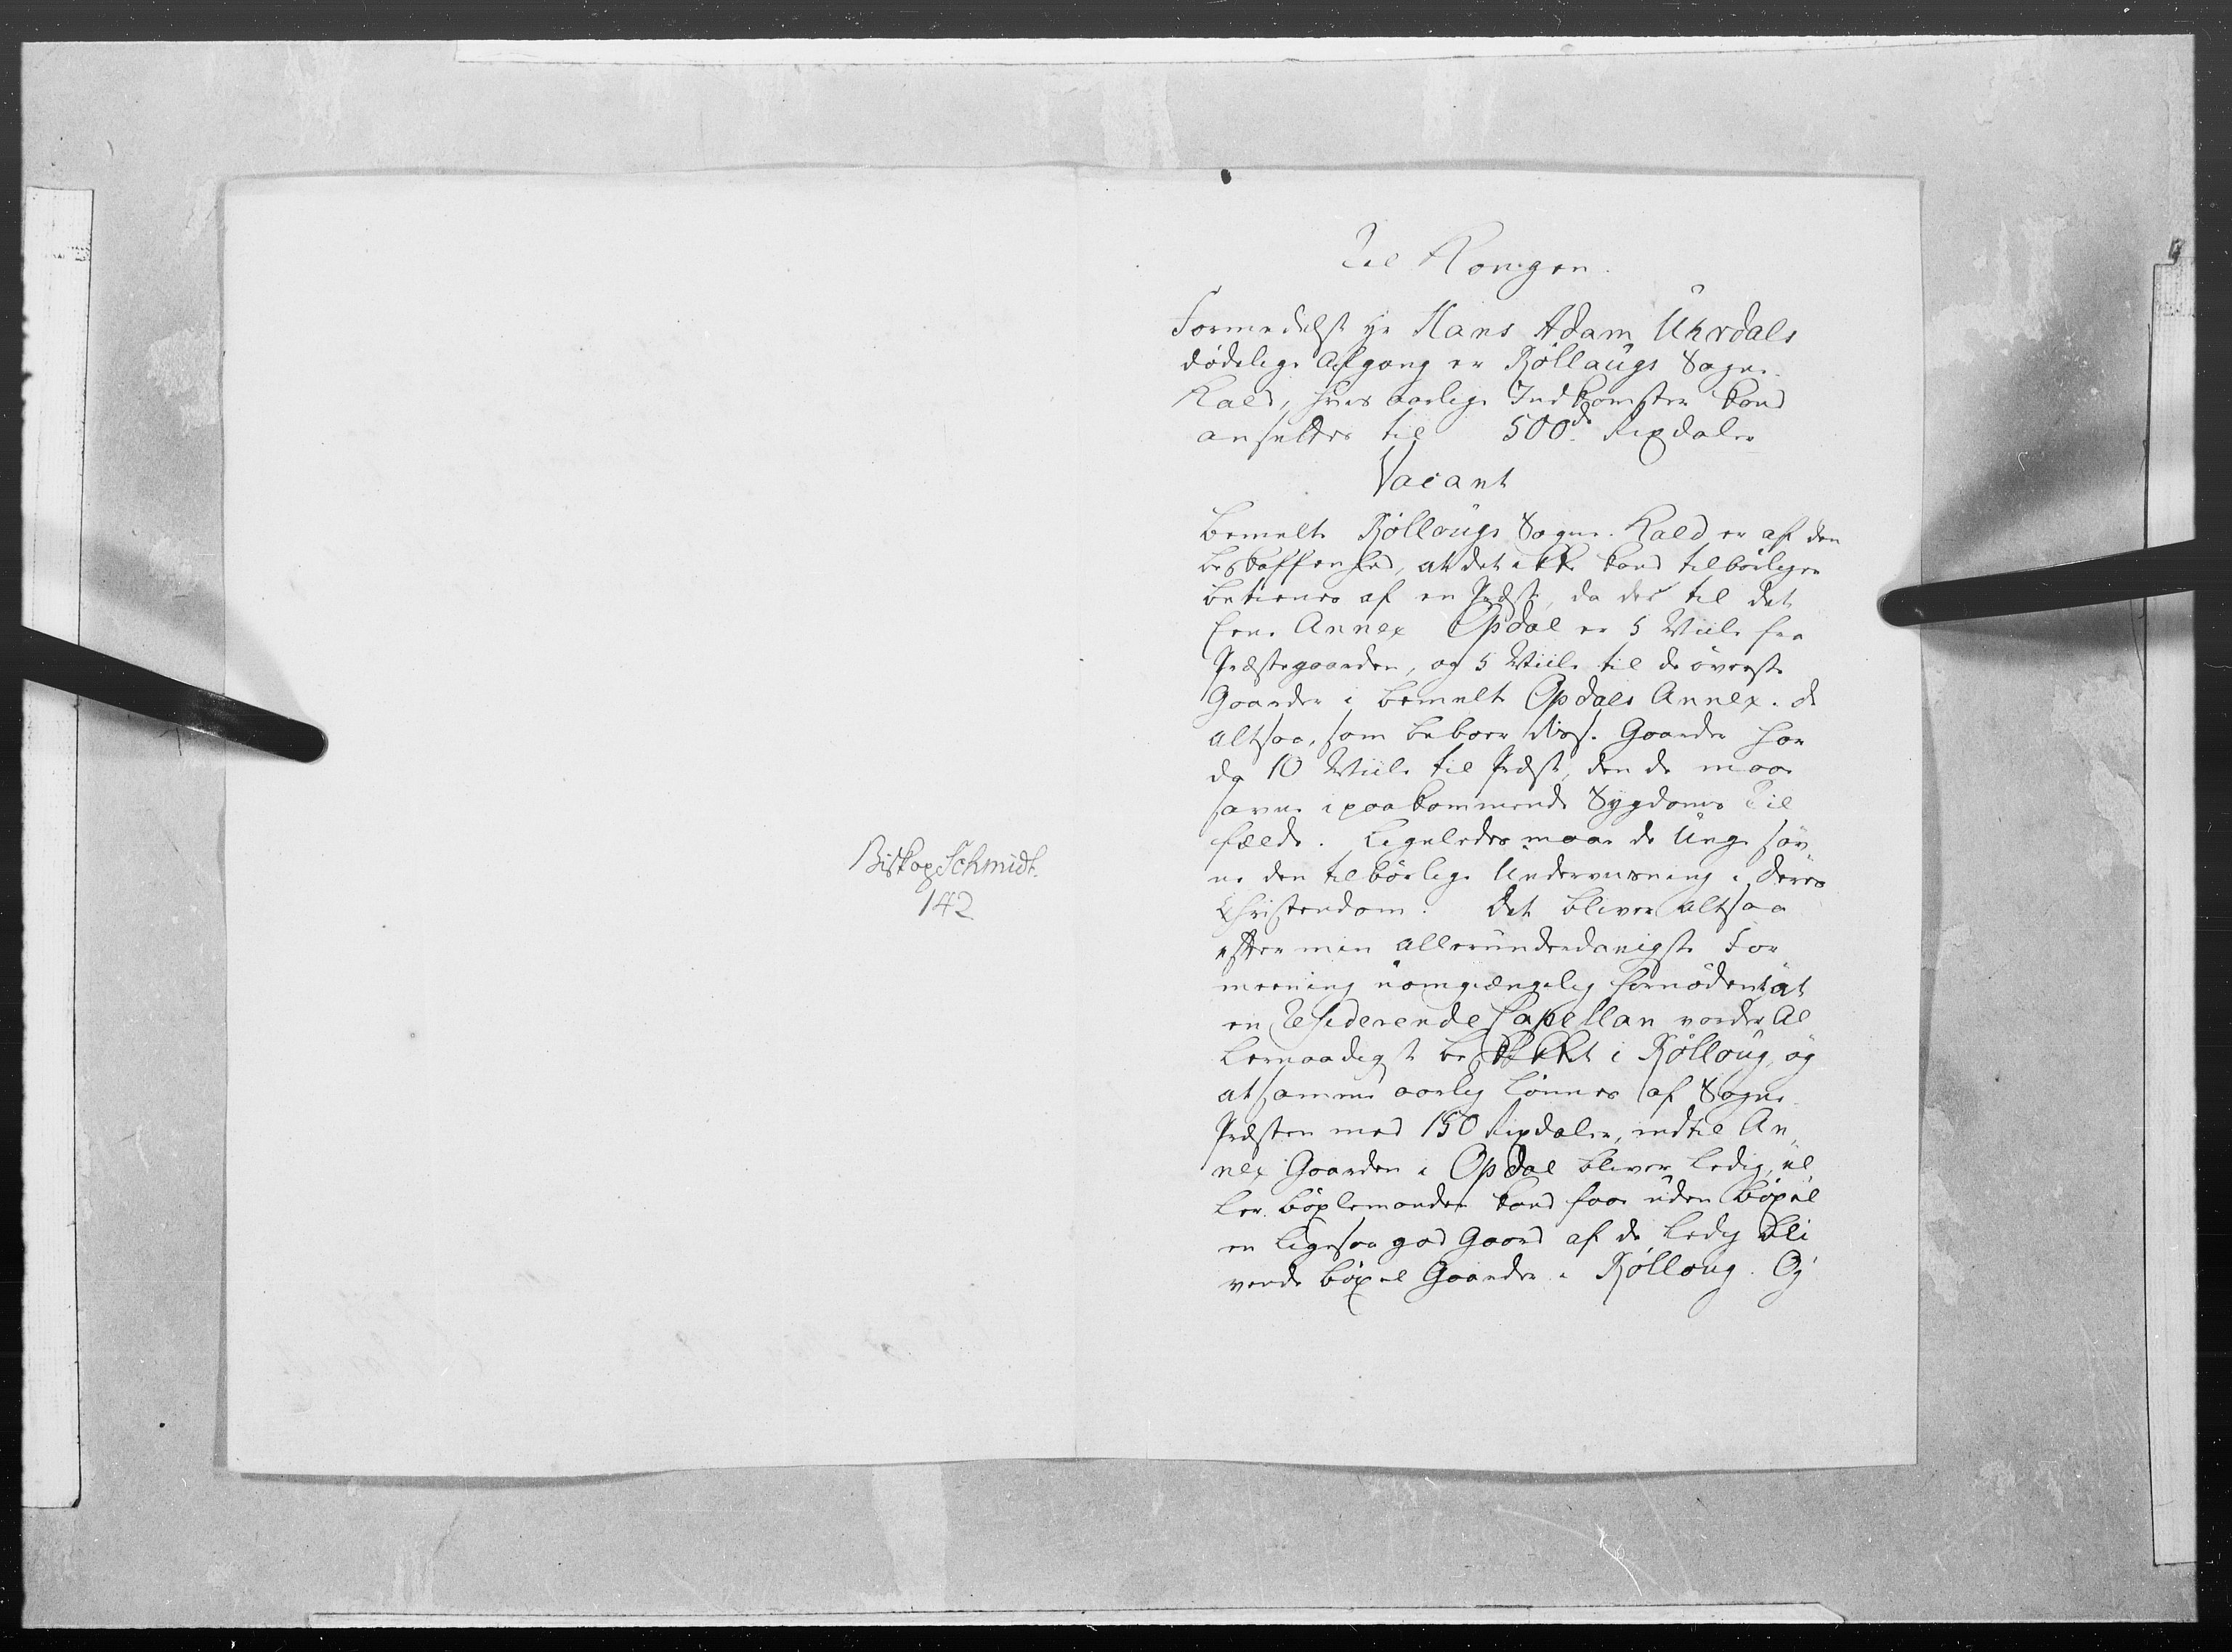 Biskop Schmidt.
142
Til Kongen.
Formedelst Hr Hans Adam Uhrdals
dödelige Afgang er Röllaugs Sogne-
Kald, hvis aarlige Indkomster kand
ansettes til 500de Rixdaler
Vacant
bemelte Röllaugs Sogne-Kald er af den
beskaffenhed, at det ikke kand tilbörligen
betienes af en Præst, da der til det
eene Annex Opdal er 5 Miile fra
Præstegaarden, og 5 Miile til de överste
Gaarder i bemelte Opdals Annex. de
altsaa, som beboer disse Gaarder har
da 10 Miile til Præst, den de maae
savne i paakommende Sygdoms Til
fælde. Ligeledes maae de Unge sav
ne den tilbörlige Underviisning i deres
Christendom. Det bliver altsaa
efter min allerunderdanigste For
meening uomgiængelig fornödent at
en Residerende Capellan vorder Al
lernaadigst beskikket i Röllaug, og
at samme aarlig lönnes af Sogne-
Præsten med 150 Rixdaler, indtil An
nex Gaarden i Opdal bliver ledig, el
ler böxlemanden kand faae uden böxel
en ligesaa god Gaard af de ledig bli
vende böxel Gaarder i Röllaug. Og